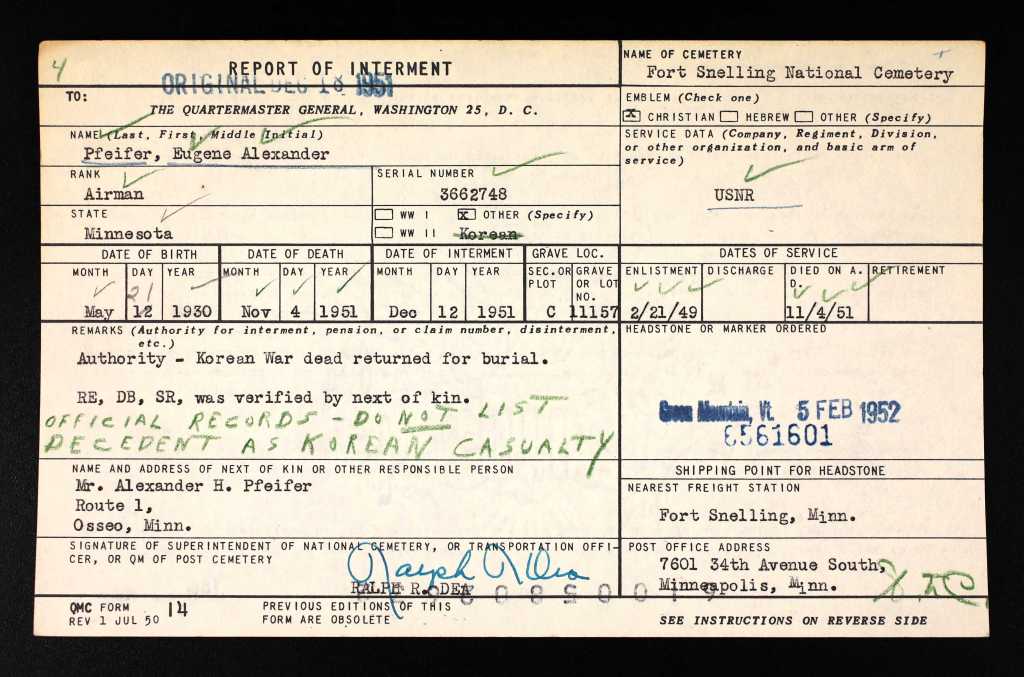 4
REPORT OF INTERMENT
ORIGINAL DEC 18 1951
TO:
THE QUARTERMASTER GENERAL, WASHINGTON 25, D. C.
NAME OF CEMETERY
Fort Snelling National Cemetery
EMBLEM (Check one)
X CHRISTIAN HEBREW OTHER (Specify)
NAME (Last, First, Middle Initial)
Pfeifer, Eugene Alexander
SERVICE DATA (Company, Regiment, Division,
or other organization, and basic arm of
service)
USNR
RANK
Airman
SERIAL NUMBER
3662748
STATE
Minnesota
WW I X OTHER (Specify)
WW II Korean
DATE OF BIRTH DATE OF DEATH DATE OF INTERMENT GRAVE LOC. DATES OF SERVICE
MONTH DAY YEAR MONTH DAY YEAR MONTH DAY YEAR SEC. OR PLOT GRAVE OR LOT NO. ENLISTMENT DISCHARGE DIED ON A. D. RETIREMENT
21
May 12 1930 Nov 4 1951 Dec 12 1951 C 11157 2/21/49 11/4/51
REMARKS (Authority for interment, pension, or claim number, disinterment,
etc.)
Authority - Korean War dead returned for burial.
RE, DB, SR, was verified by next of kin.
OFFICIAL RECORDS - DO NOT LIST
DECEDENT AS KOREAN CASUALTY
HEADSTONE OR MARKER ORDERED
Green Mountain, Vt. 5 FEB 1952
6561601
NAME AND ADDRESS OF NEXT OF KIN OR OTHER RESPONSIBLE PERSON
Mr. Alexander H. Pfeifer
Route 1,
Osseo, Minn.
SHIPPING POINT FOR HEADSTONE
NEAREST FREIGHT STATION
Fort Snelling, Minn.
SIGNATURE OF SUPERINTENDENT OF NATIONAL CEMETERY, OR TRANSPORTATION OFFI-
CER, OR QM OF POST CEMETERY
Ralph R Dea
RALPH R. DEA
POST OFFICE ADDRESS
7601 34th Avenue South,
Minneapolis, Minn.
QMC FORM 14
REV 1 JUL 50
PREVIOUS EDITIONS OF THIS
FORM ARE OBSOLETE
SEE INSTRUCTIONS ON REVERSE SIDE